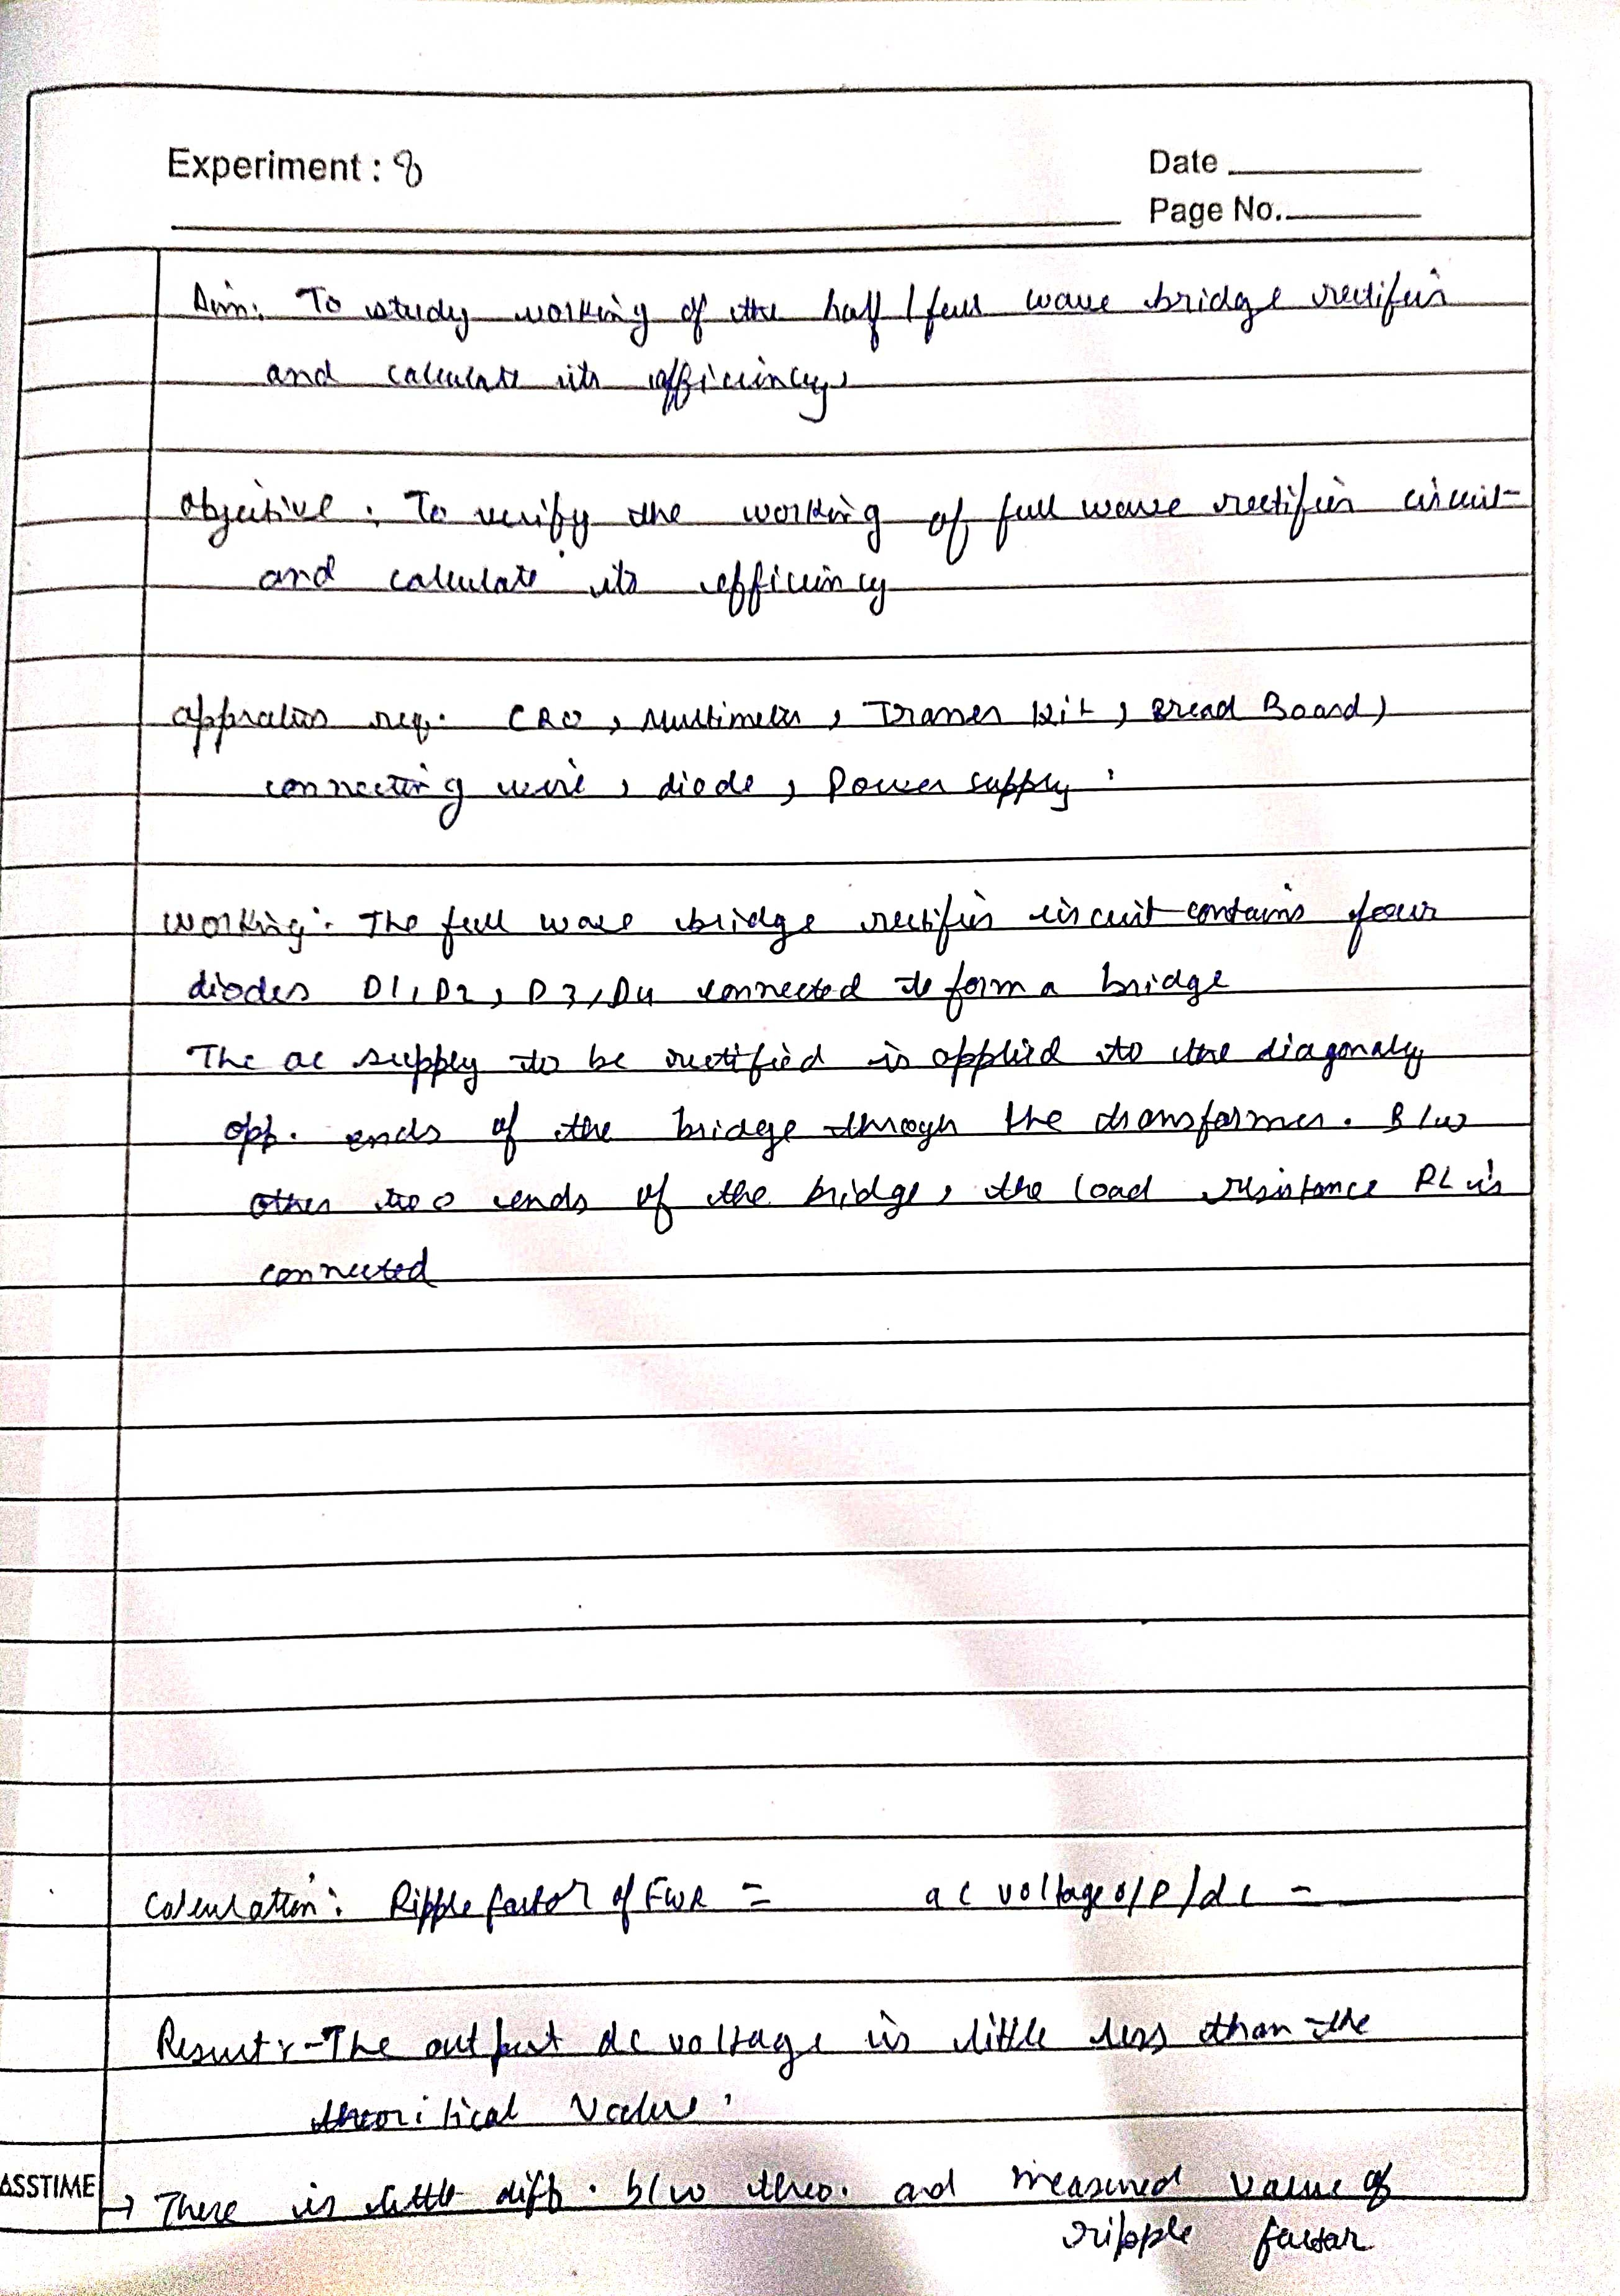 Experiment : 8
Date
Page No.
Aim: To study working of the half / full wave bridge rectifier
and calculate its efficiency.
Objective : To verify the working of full wave rectifier circuit
and calculate its efficiency
appratus req. CRO, Multimeter, Traner kit, Bread Board,
connecting wire, diode, Power supply.
Working: The full wave bridge rectifier circuit contains four
diodes D1, D2, D3, D4 connected to form a bridge
The ac supply to be rectified is applied to the diagonaly
opp. ends of the bridge through the transformer. B/w
other two ends of the bridge, the load resistance RL is
connected
Calculation: Ripple factor of FWR = ac voltage o/P /dc =
Result :- The output dc voltage is little less than the
theoritical value.
ASSTIME
→ There is little diff. b/w theo. and measured value of
ripple factor